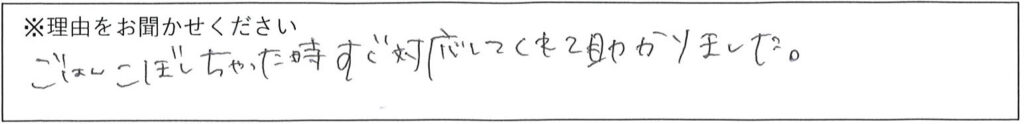 ※理由をお聞かせください
ごはんこぼしちゃった時すぐ対応してくれて助かりました。